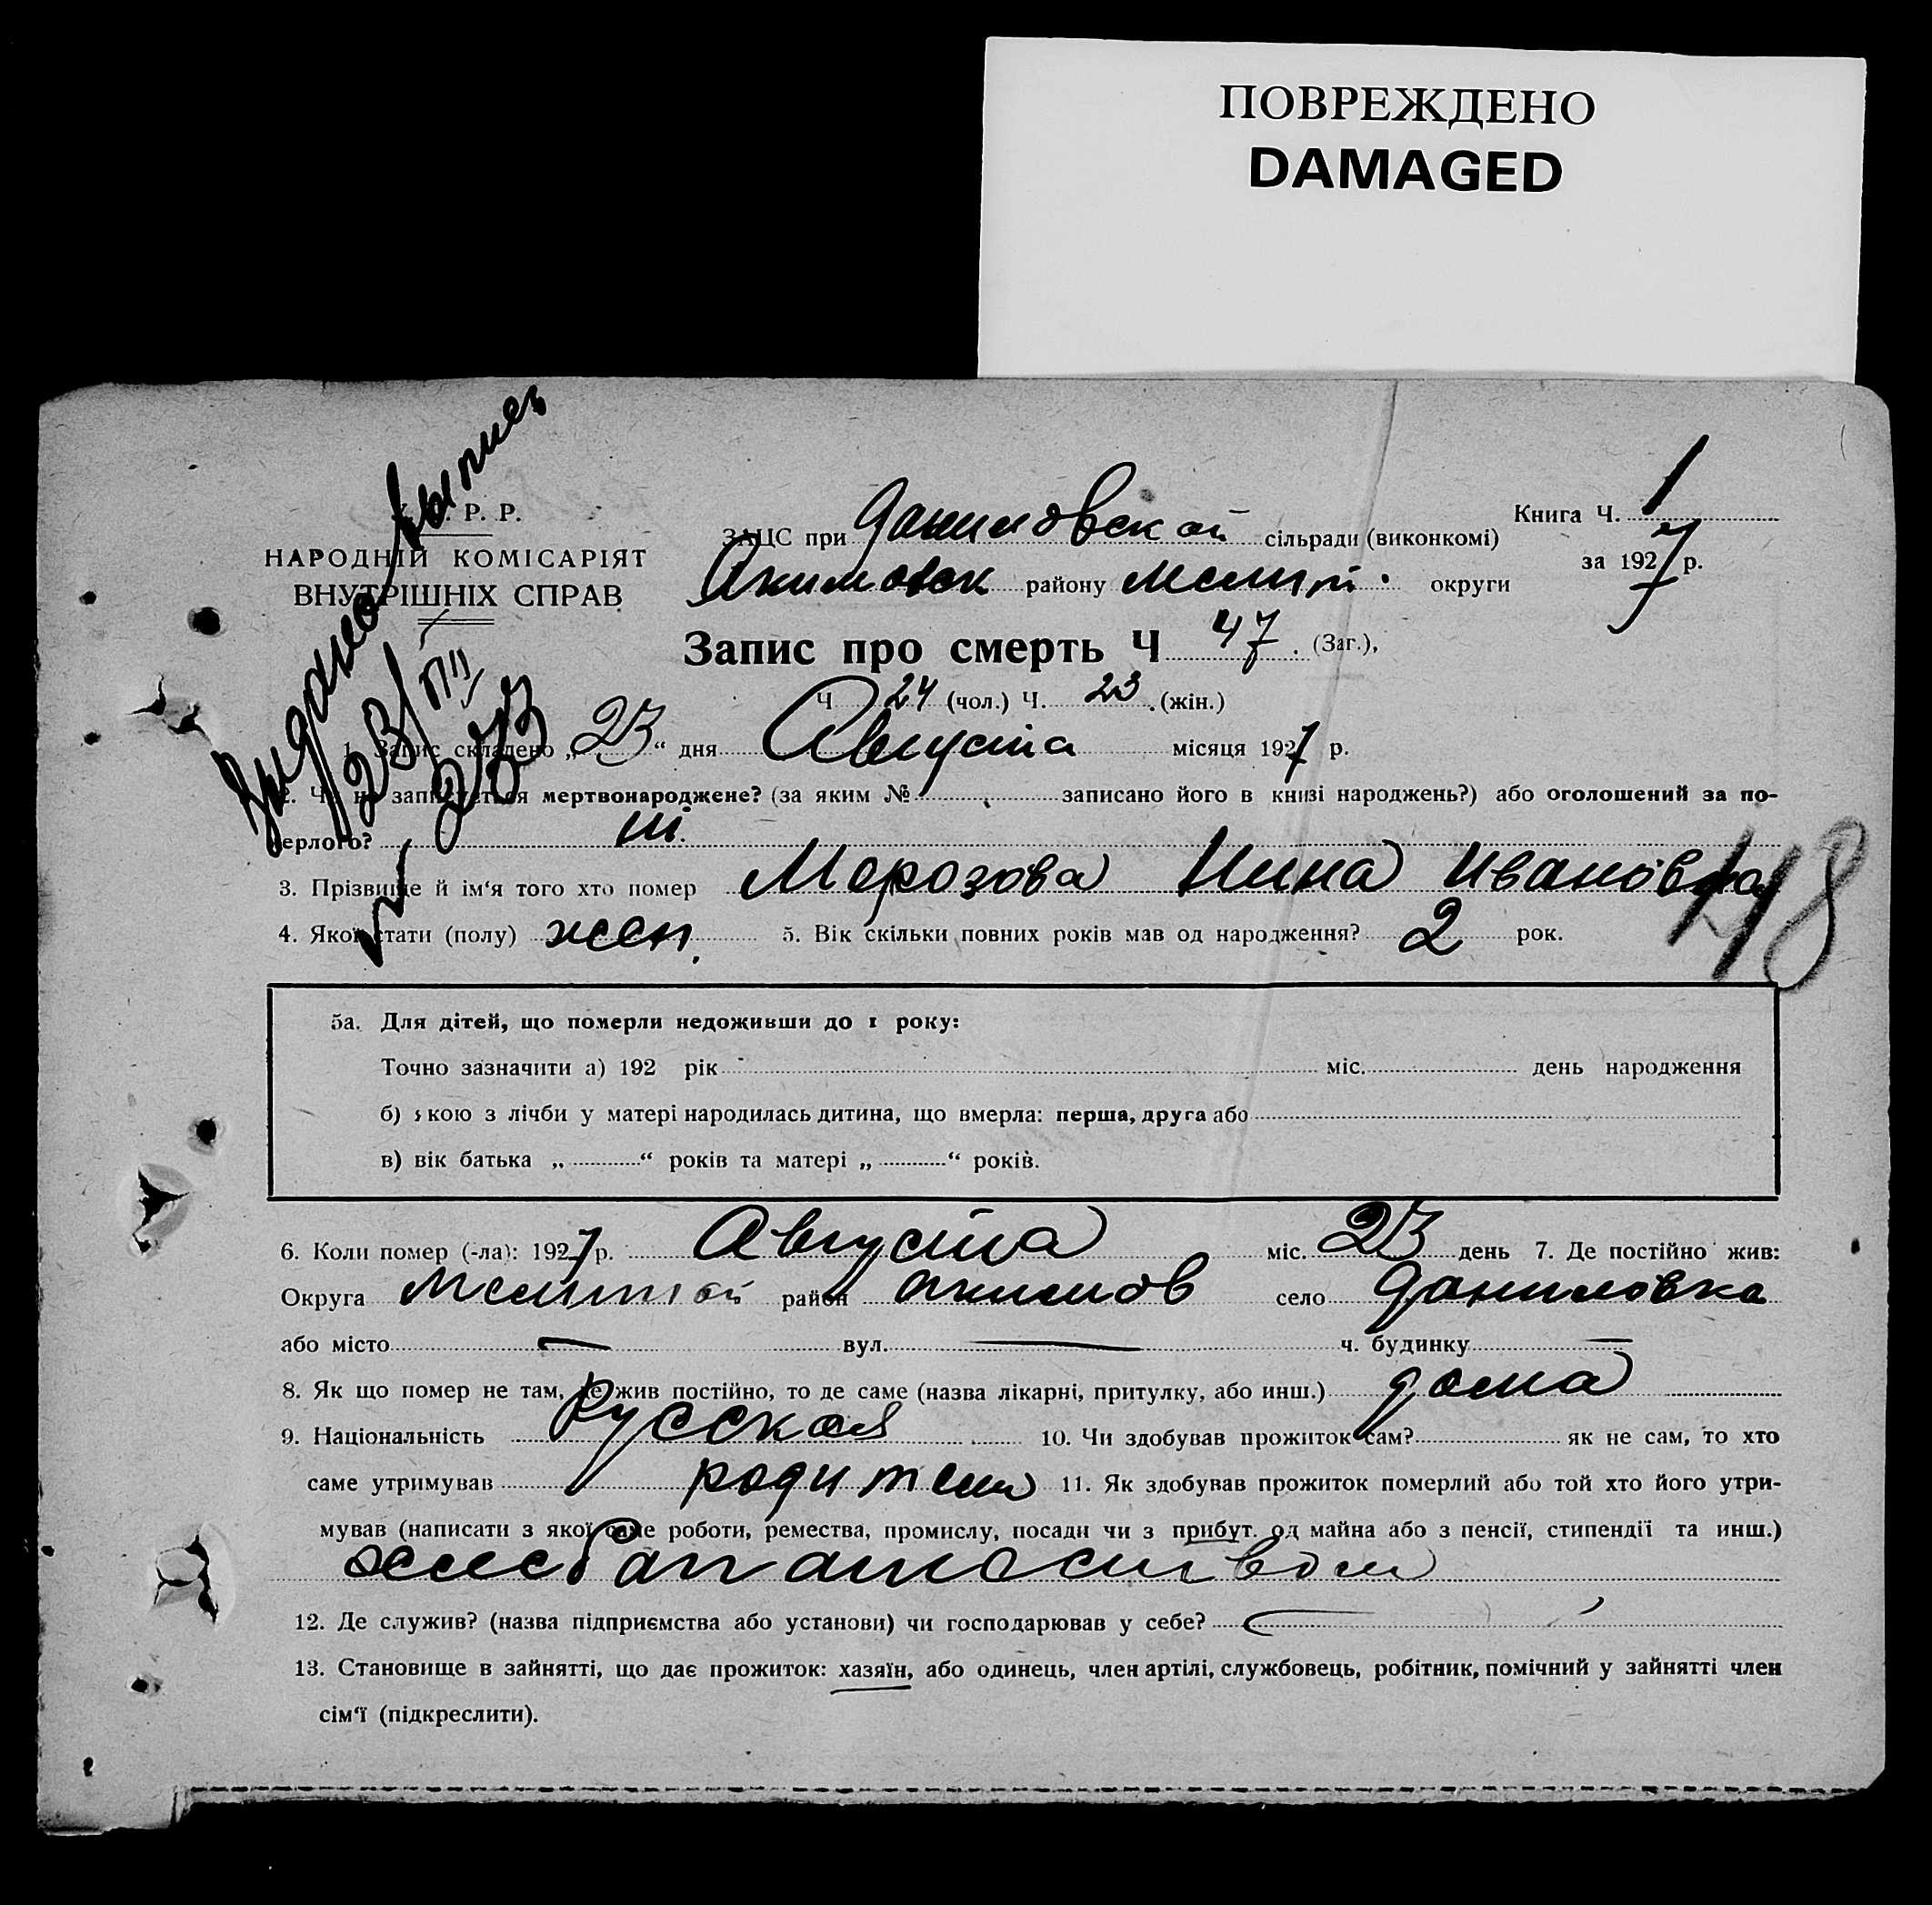 ПОВРЕЖДЕНО
DAMAGED
Выдано выпись
23/VIII
273
Р. Р.
НАРОДНІЙ КОМІСАРІЯТ
ВНУТРІШНІХ СПРАВ
ЗАЦС при Даниловской сільради (виконкомі)
Акимовск району Мелит. округи
Книга Ч. 1
за 1927 р.
Запис про смерть Ч 47. (Заг.),
Ч 24 (чол.) Ч. 23 (жін.)
1. Запис складено „23“ дня Августа місяця 1927 р.
2. Чи не записується мертвонароджене? (за яким № записано його в книзі народжень?) або оголошений за по-
мерлого?
3. Прізвище й ім‘я того хто помер Морозова Нина Ивановна
48
4. Якої стати (полу) жен. 5. Вік скільки повних років мав од народження? 2 рок.
5а. Для дітей, що померли недоживши до 1 року:
Точно зазначити а) 192 рік міс. день народження
б) якою з лічби у матері народилась дитина, що вмерла: перша, друга або
в) вік батька „ “ років та матері „ “ років.
6. Коли помер (-ла): 1927 р. Августа міс. 23 день 7. Де постійно жив:
Округа Мелитой район Акимов село Даниловка
або місто — вул. — ч. будинку —
8. Як що помер не там, де жив постійно, то де саме (назва лікарні, притулку, або инш.) дома
9. Національність Русская 10. Чи здобував прожиток сам? як не сам, то хто
саме утримував родители 11. Як здобував прожиток померлий або той хто його утри-
мував (написати з якої саме роботи, ремества, промислу, посади чи з прибут. од майна або з пенсії, стипендії та инш.)
хлебопашеством
12. Де служив? (назва підприємства або установи) чи господарював у себе?
13. Становище в зайнятті, що дає прожиток: хазяїн, або одинець, член артілі, службовець, робітник, помічний у зайнятті член
сім‘ї (підкреслити).